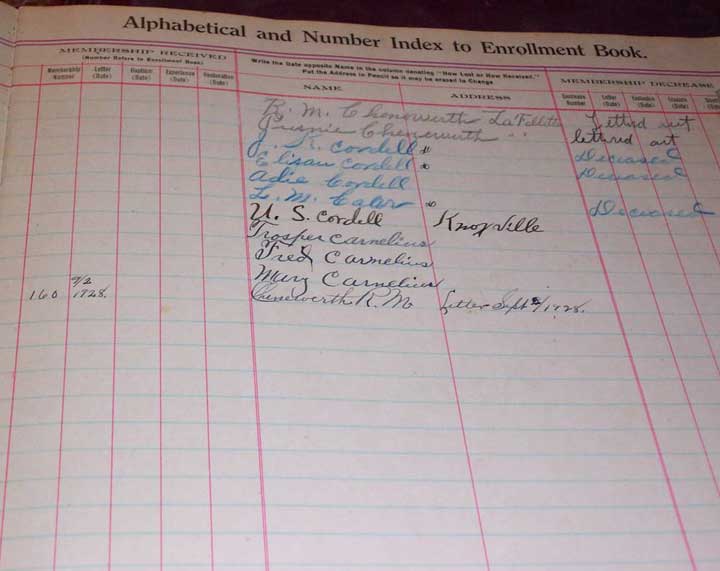 Alphabetical and Number Index to Enrollment Book.
MEMBERSHIP RECEIVED
(Number Refers to Enrollment Book)
Write the Date opposite Name in the column denoting "How Lost or How Received."
Put the Address in Pencil so it may be erased to Change
MEMBERSHIP DECREASE
Membership Number Letter (Date) Baptism (Date) Experience (Date) Restoration (Date) NAME ADDRESS Decrease Number Letter (Date) Exclusion (Date) Erasure (Date)
R. M. Chenowerth LaFollette Lettrd out
Chenowerth " lettred out
J. R. Cordell Deceased
Elisau Cordell Deceased
Adie Cordell
L. M. Cater Deceased
U. S. Cordell Knoxville
Trosper Carnelius
Fred Carnelius
Mary Carnelius
160 9/2 1928. Chenewerth R. M. Letter Sept 2/1928.